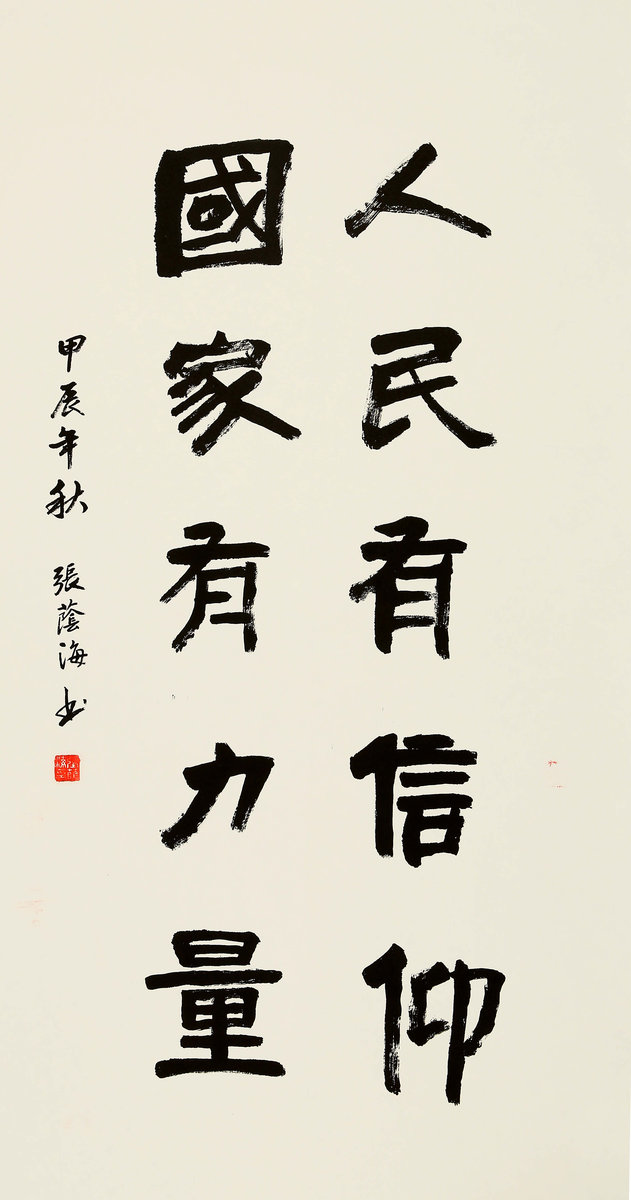 人民有信仰
國家有力量
甲辰年秋 張蔭海书